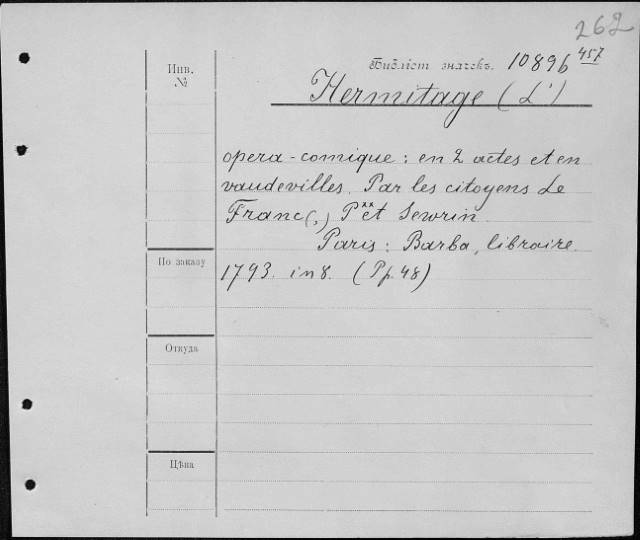 262
Библіот. значекъ. 10896 457
Инв. №
Hermitage (L')
opera-comique: en 2 actes et en
vaudevilles. Par les citoyens Le
Franc(,) P** et Sewrin.
Paris: Barba, libraire.
По заказу
1793. in 8. (Pp. 48)
Откуда
Цѣна